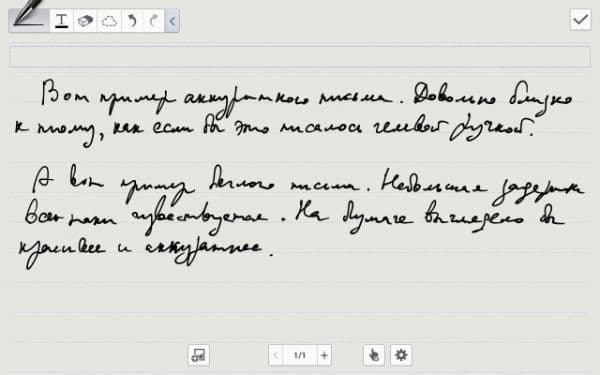 Т
Вот пример аккуратного письма. Довольно близко
к тому, как если бы это писалось гелевой ручкой.
А вот пример беглого письма. Небольшая задержка
все-таки чувствуется. На бумаге выглядело бы
красивее и аккуратнее.
1/1